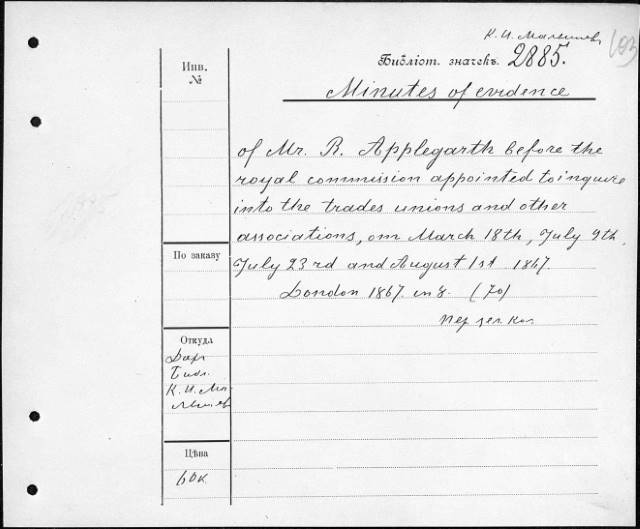 К. И. Малышев
103
Библіот. значекъ. 2885.
Инв.
№
Minutes of evidence
of Mr. R. Applegarth before the
royal commission appointed to inquire
into the trades unions and other
associations, on March 18th, July 9th,
July 23rd and August 1st 1867.
По заказу
London 1867. in 8. (70)
Пер зел. кол.
Откуда
Дар
Библ.
К. И. Ма-
лышев
Цѣна
60к